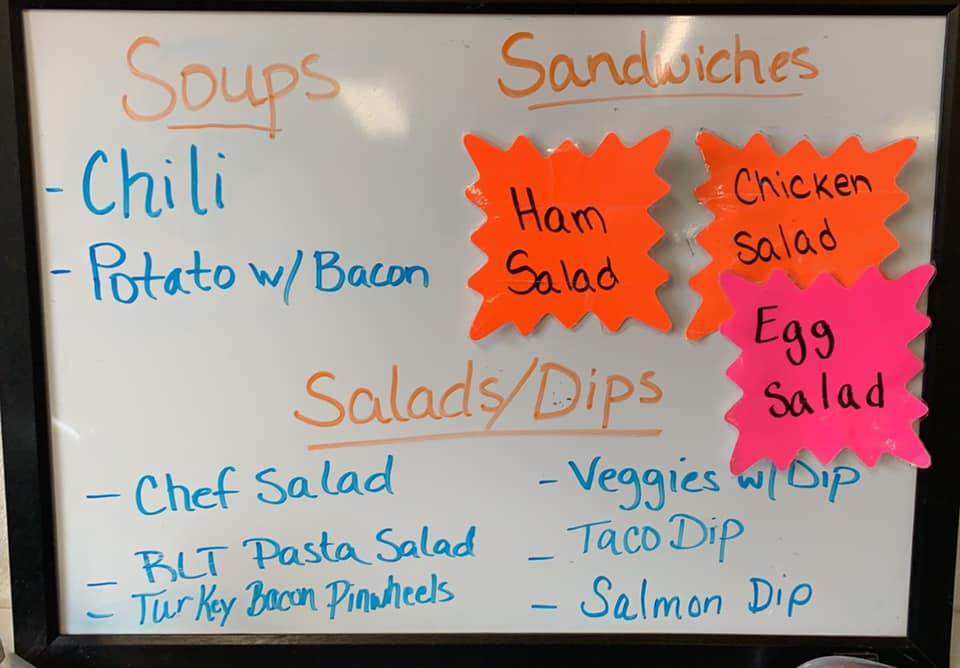 Soups
- Chili
- Potato w/ Bacon
Sandwiches
Ham
Salad
Chicken
Salad
Egg
Salad
Salads/Dips
- Chef Salad
- BLT Pasta Salad
- Turkey Bacon Pinwheels
- Veggies w/ Dip
- Taco Dip
- Salmon Dip